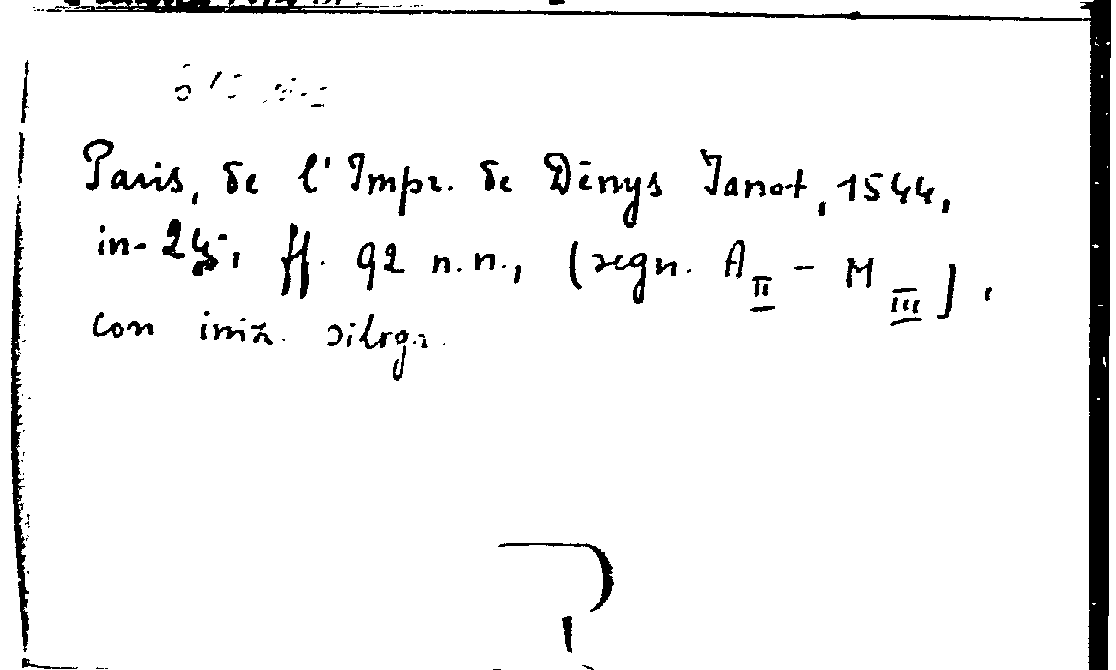 Paris, de l'Impr. de Dēnys Janot, 1544,
in-24°, ff. 92 n.n., (segn. A II - M III),
con iniz. silogr.